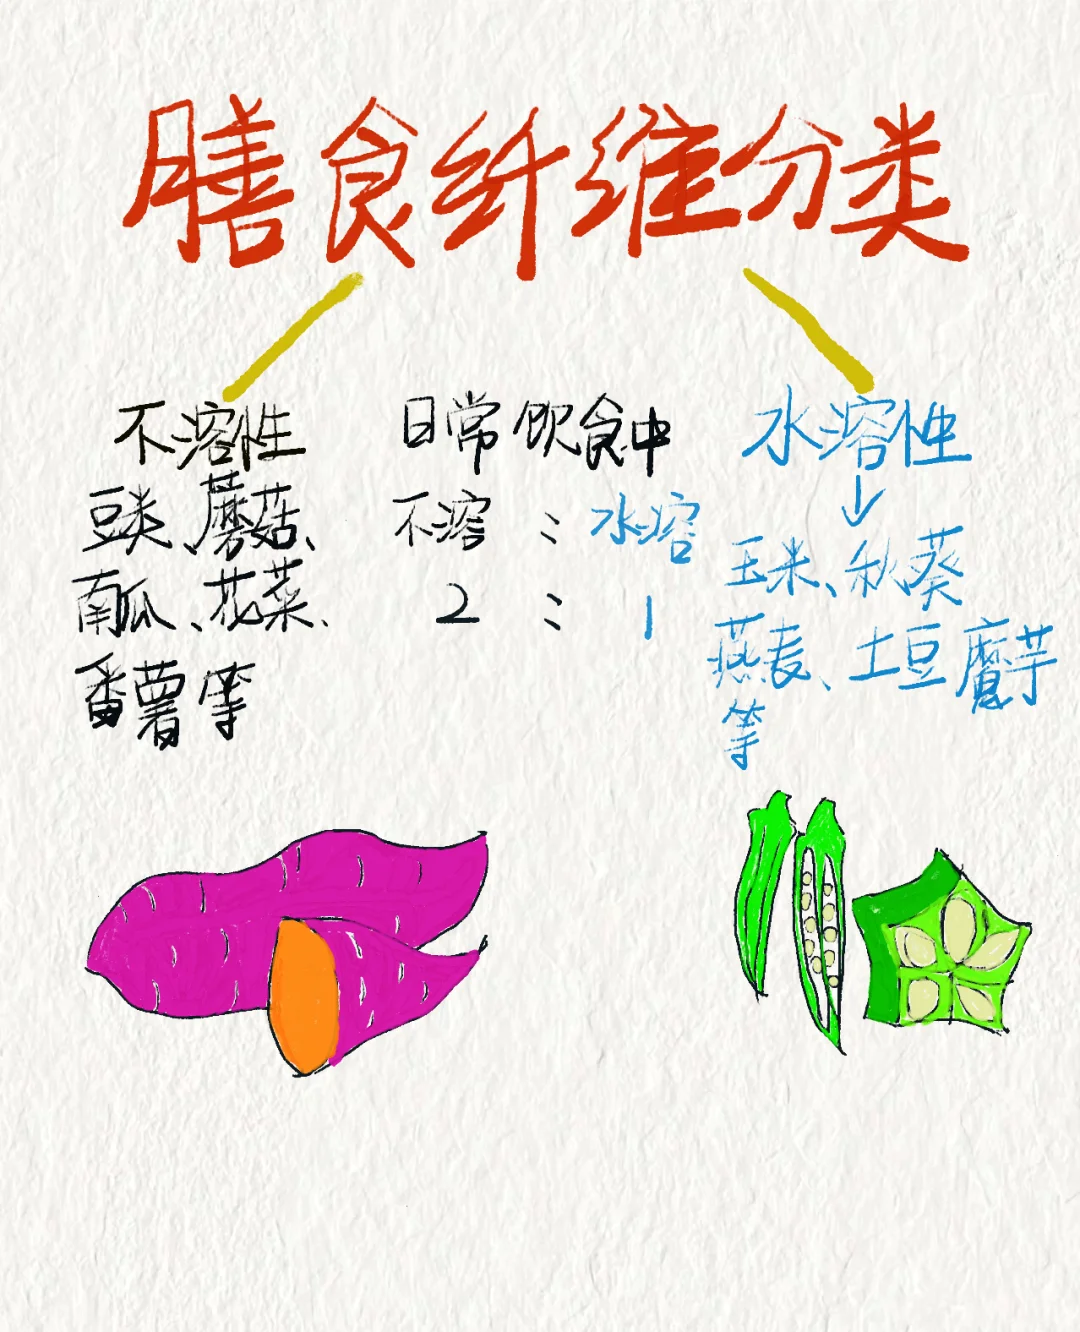 膳食纤维分类
不溶性
豆类、蘑菇、
南瓜、花菜、
番薯等
日常饮食中
不溶：水溶
2：1
水溶性
↓
玉米、秋葵
燕麦、土豆魔芋
等